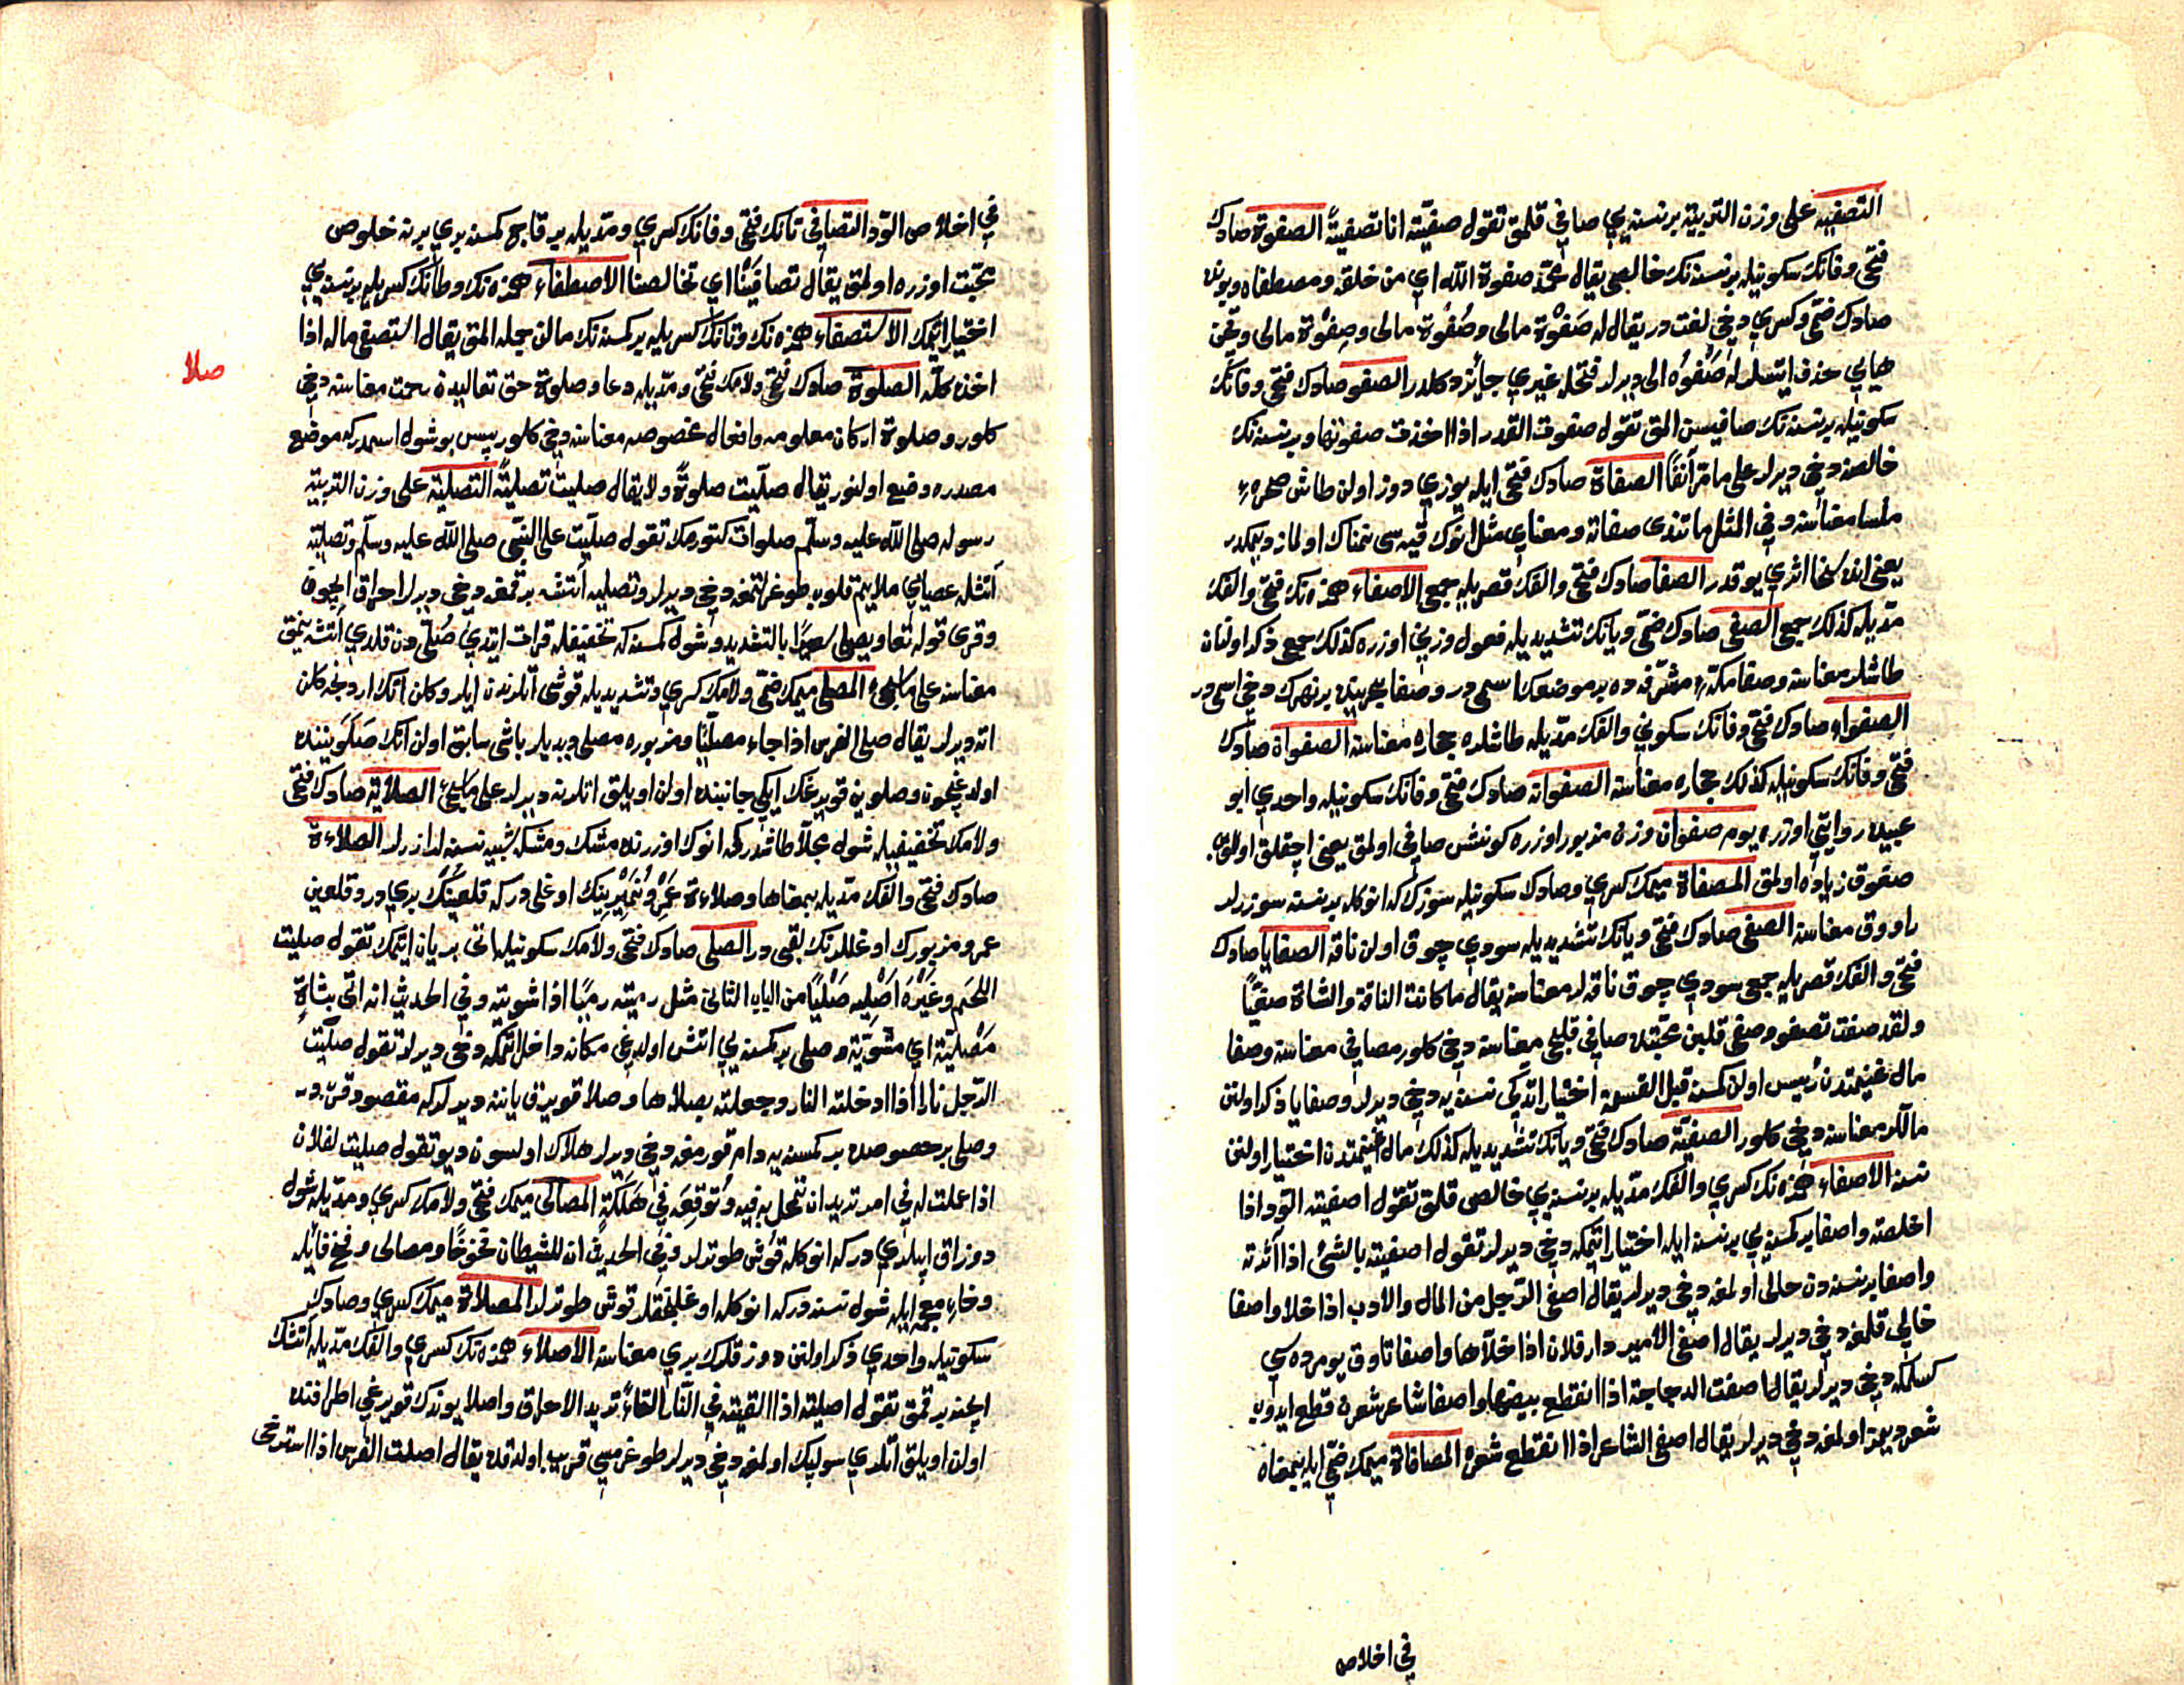 التصفيه على وزن التربية بر نسنه يي صافي قلمق تقول صفيته انا تصفيةً الصفوة صادك
فتحى وفانك سكونيله بر نسنه نك خالصى يقال محمد صفوة الله اي من خلقه ومصطفاه وبونده
صادك ضمى وكسرى دخى لغت در يقال له صَفْوة مالى وصُفْوة مالى وصِفْوة مالى وقچن
هايي حذف ايتسلر له صَفْوُ الى ديرلر فتحله غيري جائز دكلدر الصفو صادك فتحى وفانك
سكونيله بر نسنه نك صافيسن المق تقول صفوت القدر اذا اخذت صفوتها وبر نسنه نك
خالصنه دخى ديرلر على ما مر آنفًا الصفاة صادك فتحى ايله يوزي دوز اولن طاش صخرهٔ
ملسا معناسنه وفي المثل ما تندى صفاته ومعناي مثل انوك قيه سى نمناك اولماز ديمكدر
يعنى انده سخا اثري يوقدر الصفا صادك فتحى والفك قصريله جمعى الاصفاء همزه نك فتحى والفك
مديله كذلك جمع الصفى صادك ضمى ويانك تشديديله فعول وزنى اوزره كذلك جمع ذكر اولنان
طاشلر معناسنه وصفا مكهٔ مشرفه ده بر موضعك اسمى در وصفا بحرينده بر نهرك دخى اسمى در
الصفواء صادك فتحى وفانك سكونى والفك مديله طاشلره حجاره معناسنه الصفواة صادك
فتحى وفانك سكونيله كذلك حجاره معناسنه الصفوانه صادك فتحى وفانك سكونيله واحدي ابو
عبيده روايتى اوزره يوم صفوان وزن مزبور اوزره كونش صافى اولمق يعنى اچقلق اولمق
صغوق زياده اولمق المصفاة ميمك كسري وصادك سكونيله سوزك كه انوكله بر نسنه سوزرلر
راووق معناسنه الصفى صادك فتحى ويانك تشديديله سودي چوق اولن ناقه الصفايا صادك
فتحى والفك قصريله جمعى سودي چوق ناقه لر معناسنه يقال ما كانت الناقة والشاة صفيًّا
ولقد صفت تصفو وصفى قلبن محبتده صافى قلمى معناسنه دخى كلور مصافي معناسنه وصفا
مال غنيمتدن رئيس اولن كمسنه قبل القسمة اختيار اتدكى نسنه يه دخى ديرلر وصفايا ذكر اولنن
ماللر معناسنه دخى كلور الصفية صادك فتحى ويانك تشديديله كذلك مال غنيمتدن اختيار اولنن
نسنه الاصفاء همزه نك كسرى والفك مديله بر نسنه يي خالصى قلمق تقول اصفيته الود اذا
اخلصته واصفا بر كمسنه يي بر نسنه ايله اختيار اتمكه دخى ديرلر تقول اصفيته بالشئ اذا آثرته
واصفا بر نسنه دن خالى اولمغه دخى ديرلر يقال اصفى الرجل من المال والادب اذا خلا واصفا
خالي قلمغه دخى ديرلر يقال اصفى الأمير دار فلان اذا خلاها واصفا تاوق يومرده سي
كسلمكه دخى ديرلر يقال اصفت الدجاجة اذا انقطع بيضها واصفا شاعر شعرن قطع ايدوب
شعر ديمز اولمغه دخى ديرلر يقال اصفى الشاعر اذا انقطع شعره المصافاة ميمك ضمى ايله بمعناه
في اخلاص
في اخلاص الود التصافى تانك فتحى وفانك كسري ومديله بر قاچ كمسنه بري برنه خلوص
محبت اوزره اولمق يقال تصافينا اي تخالصنا الاصطفاء همزه نك وطانك كسريله بر نسنه يي
اختيار اتمك الاستصفاء همزه نك وتانك كسريله بر كمسنه نك مالن جمله المق يقال استصفى ماله اذا
اخذه كله الصلوة صادك فتحى ولامك فتحى ومديله دعا وصلوة حق تعاليدن رحمت معناسنه دخى
كلور وصلوة اركان معلومه وافعال مخصوصه معناسنه دخى كلور پس بو شول اسمدر كه موضع
مصدره وضع اولنور يقال صليت صلوةً ولا يقال صليت تصليةً التصلية على وزن التربية
رسوله صلى الله عليه وسلم صلوات كتورمك تقول صليت على النبى صلى الله عليه وسلم وتصليه
آتشله عصايي ملايم قلوب طوغرلتمغه دخى ديرلر وتصليه آتشه برقمغه دخى ديرلر احراق ايچون
وقرئ قوله تعا ويصلى سعيرًا بالتشديد وشول كمسنه كه تخفيفله قرات ايتدي صُلِّى دن قلدي آتشه يقمق
معناسنه على ما سيجئ المصلى ميمك ضمى ولامك كسري وتشديديله قوشى آتلرندن ايلرو كلن اتك اردنجه كلن
اته ديرلر يقال صلى الفرس اذا جاء مصليًا ومزبوره مصلى ديديلر باشى سابق اولن اتك صَلَوَيننده
اولديغيچون وصلوين قويرغك ايكى جانبنده اولن اويلق اتلرنه ديرلر على ما سيجئ الصلاية صادك فتحى
ولامك تخفيفيله شول مجلا طاشدر كه انوك اوزرنده مشك ومشكه شبيه نسنه لر ازرلر الصلاءة
صادك فتحى والفك مديله بمعناها وصلاءة عَمْرو نُمَيْرينك اوغلى در كه قلعينك بري در وقلعين
عمرو مزبورك اوغللرنك لقبى در الصلى صادك فتحى ولامك سكونيله اتى بريان ايتمك تقول صليت
اللحَم وغَيْرَه اَصْلِيه صَلْيًا من الباب الثانى مثل رميته رميًا اذا شويته وفي الحديث انه اتى بشاةٍ
مَصْلِيّة اي مشوية وصلى بر كمسنه يي اتش اولديغى مكانه داخل اتمكه دخى ديرلر تقول صليت
الرجل نارا اذا ادخلته النار وجعلته يصلاها وصلا قويرق ياننه ديرلر كه مقصود قنى در
وصلى بر خصوصده بر كمسنه يه دام قورمغه دخى ديرلر هلاك اولسون ديو تقول صليت لفلان
اذا عملت له في امر تريد ان تمحل به فيه وتُوقِعَه في هَلَكَةٍ المصالى ميمك فتحى ولامك كسري ومديله شول
دوزاق ايپلري در كه انوكله قوش طوترلر وفي الحديث ان للشيطان فخوخًا ومصالى وفخ فا ايله
وخاء معجمه ايله شول نسنه در كه انوكله اوغلنجقلر قوش طوترلر المصلاة ميمك كسري وصادك
سكونيله واحدي ذكر اولنن دوزقلرك بري معناسنه الاصلاء همزه نك كسري والفك مديله آتشك
ايچنه برقمق تقول اصليته اذا القيته في النار القاءً تريد الاحراق واصلا يوندك قويرغي اطرافنده
اولن اويلق اتلري سولپك اولمغه دخى ديرلر طوغرمسي قريب اولدقده يقال اصلت الفرس اذا استرخى
صلا